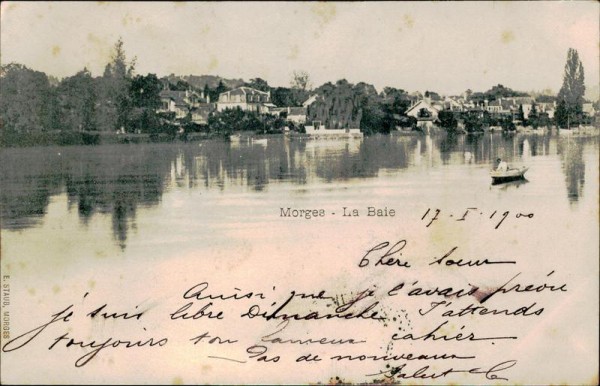 Morges - La Baie
17. I. 1900
Chère sœur
Ainsi que je l'avais prévu
je suis libre Dimanche J'attends
toujours ton fameux cahier.
Pas de nouveaux
Salut C
E. STAUD, MORGES